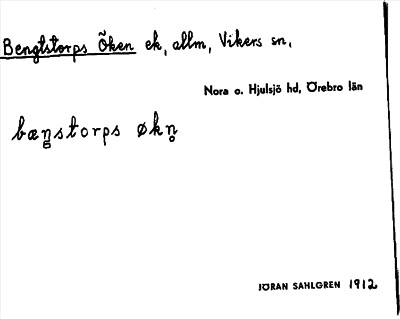 Bengtstorps Öken ek, allm, Vikers sn,
Nora o. Hjulsjö hd, Örebro län
bæn̥storps økn̥
JÖRAN SAHLGREN 1912